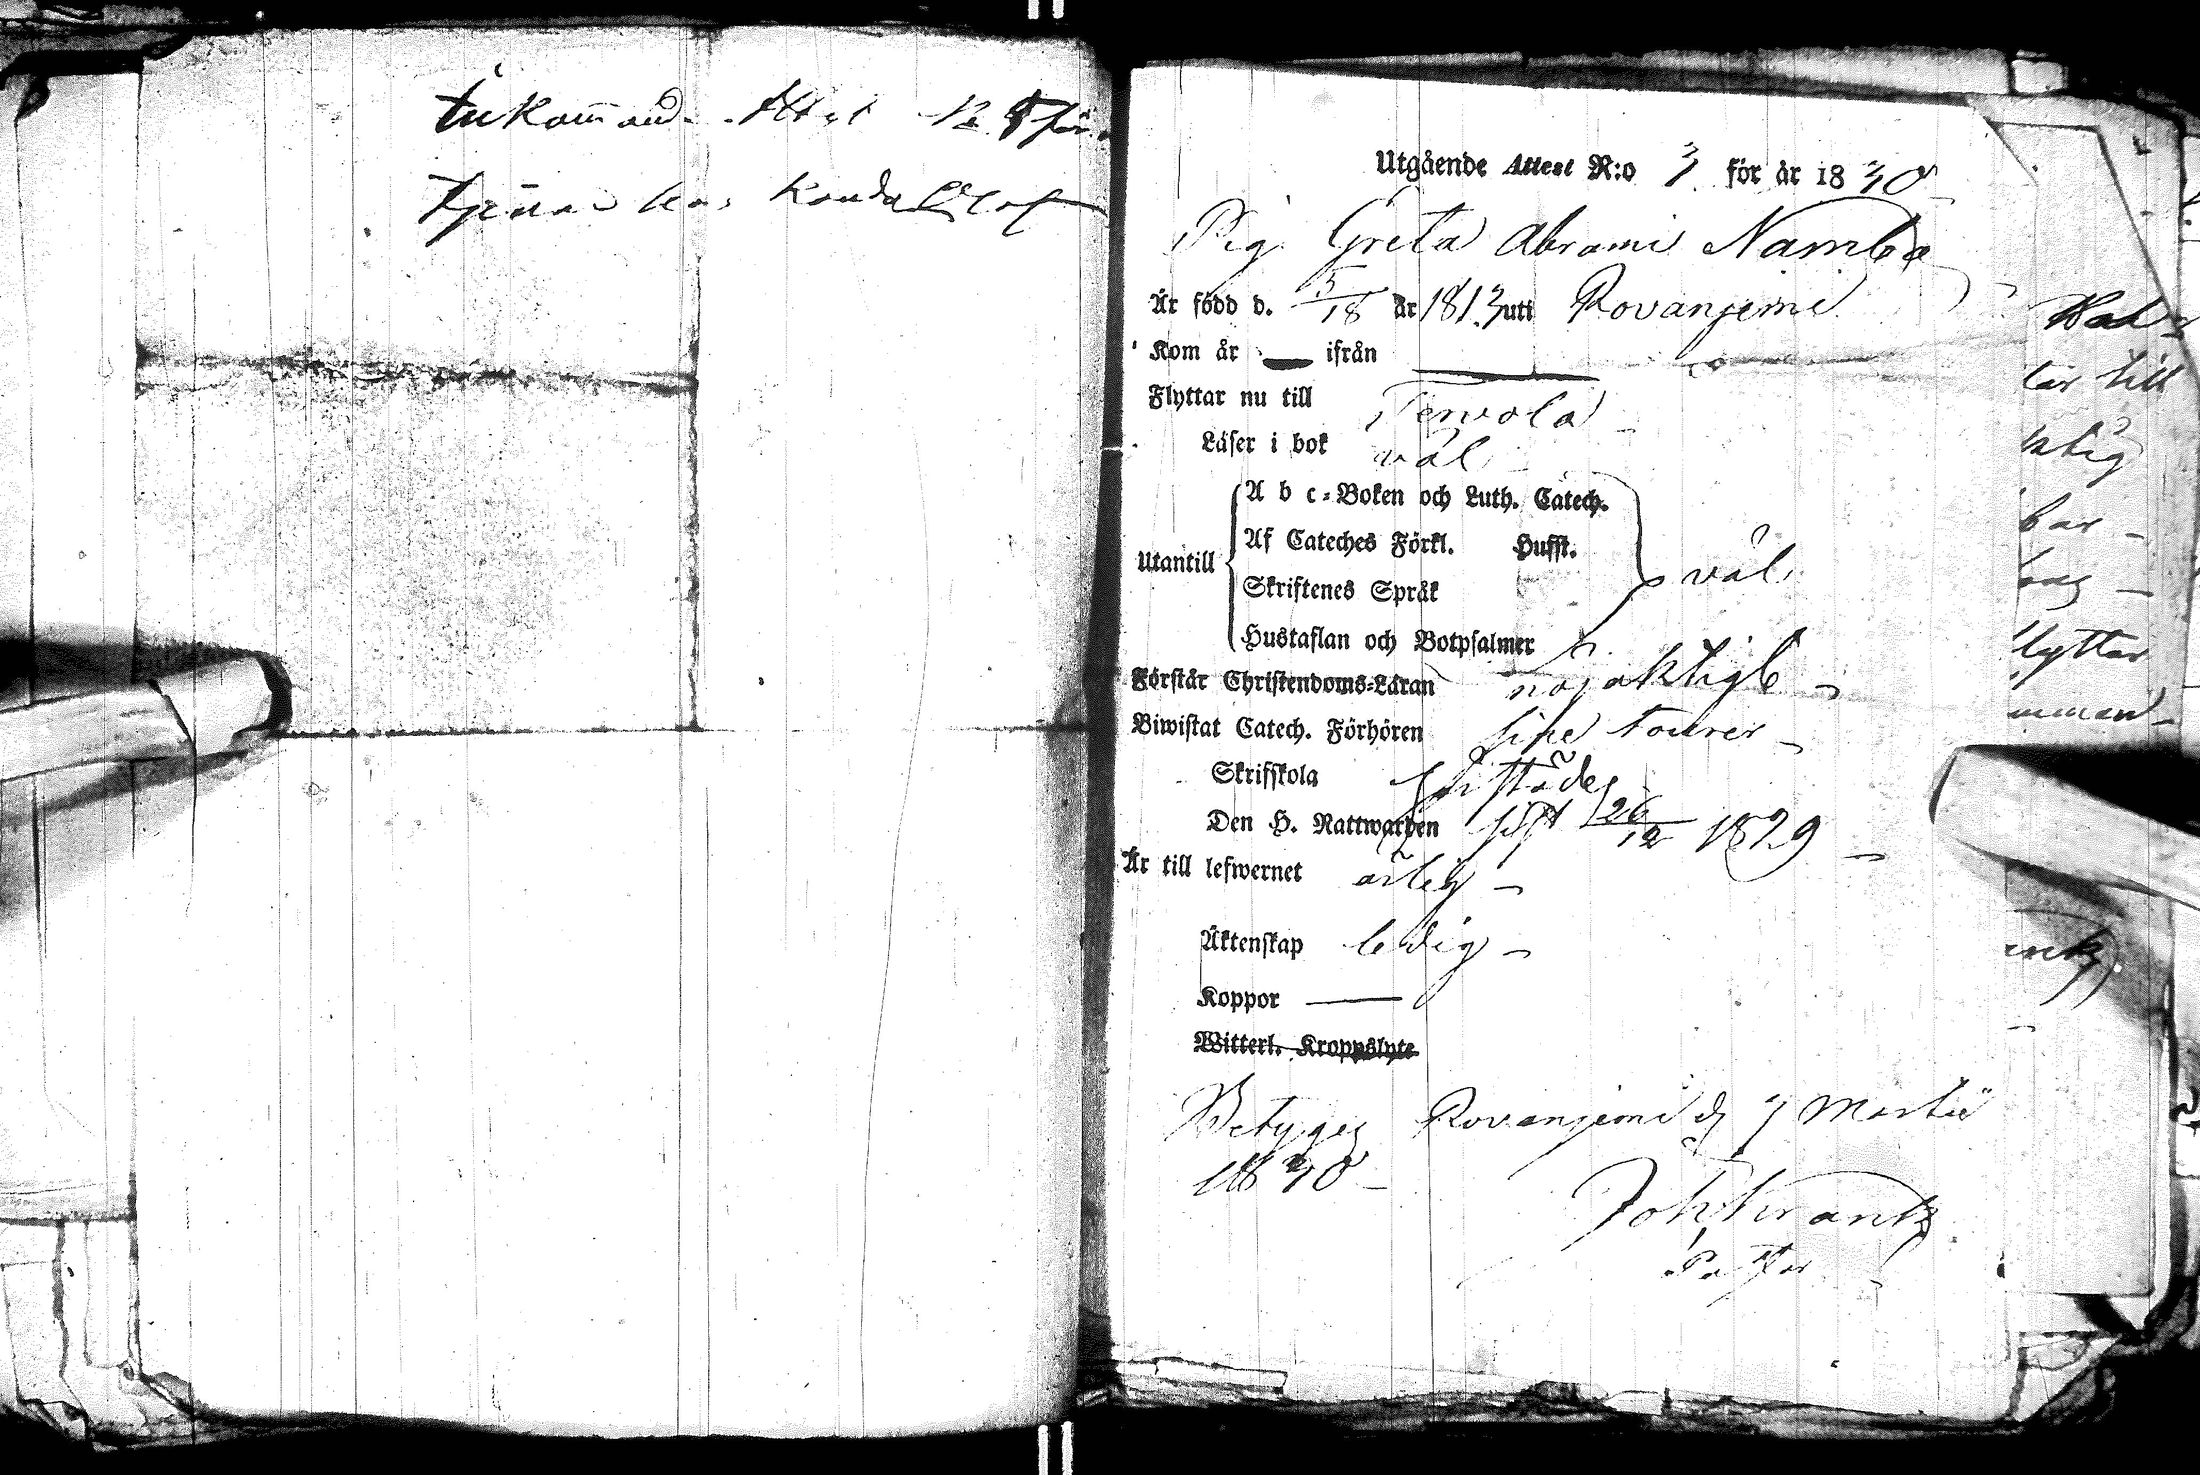 Inkommand. Attest No 8 för
Tjenar hos Kauda Olof
Utgående Attest N:o 3 för år 1830
Pig. Greta Abrami Namba
Är född d. 5/18 år 1813 uti Rovanjemi
Kom år — ifrån —
Flyttar nu till Tervola
Läser i bok väl
Utantill
A b c-Boken och Luth. Catech.
Af Cateches Förkl. Husst.
Skriftenes Språk
väl
Hustaflan och Botpsalmer
Förstår Christendoms-Läran nöjaktigt
Biwistat Catech. Förhören sine tourer
Skrifskola
Den H. Nattwarden sist 26/12 1829
Är till lefwernet ärlig
Äktenskap ledig
Koppor —
Witterl. Kroppslyte
Betygez Rovanjemi d. 7 Martii
1830
Joh. Wirantz
Pastor
tar till
ktig
bar
lyttar